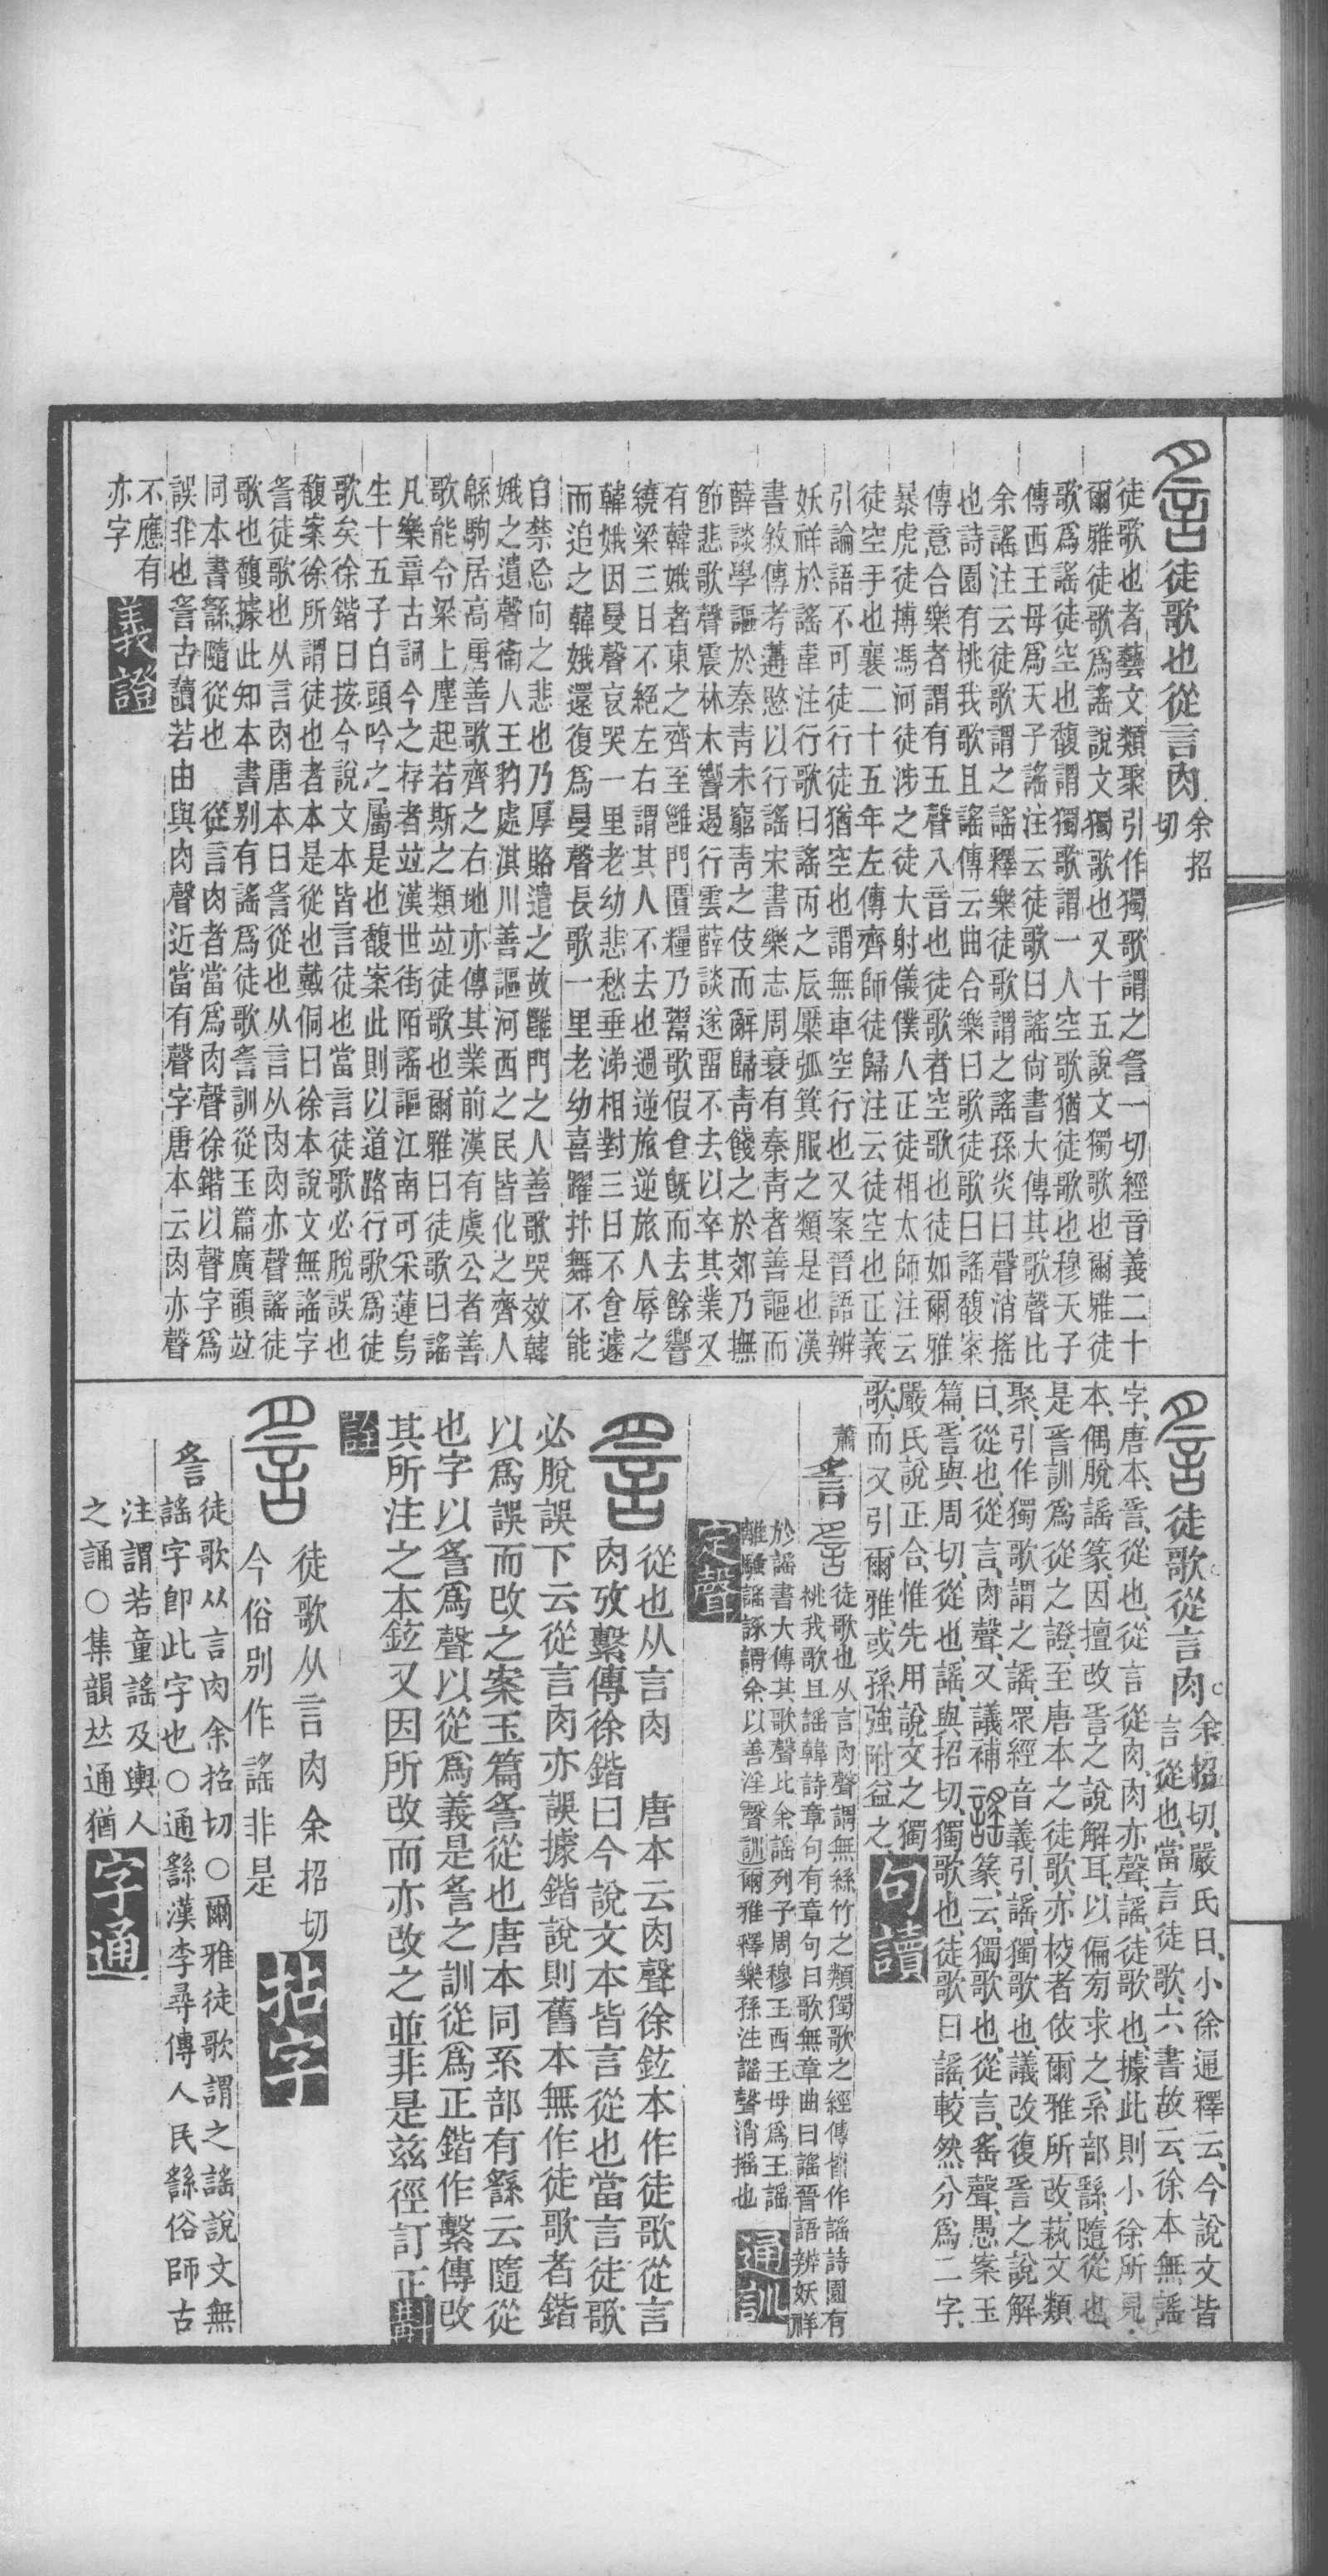 徒歌也從言肉余招切
徒歌也者藝文類聚引作獨歌謂之䚻一切經音義二十
爾雅徒歌爲謠說文獨歌也又十五說文獨歌也爾雅徒
歌爲謠徒空也馥謂獨歌謂一人空歌猶徒歌也穆天子
傳西王母爲天子謠注云徒歌曰謠尙書大傳其歌聲比
余謠注云徒歌謂之謠釋樂徒歌謂之謠孫炎曰聲消搖
也詩園有桃我歌且謠傳云曲合樂曰歌徒歌曰謠馥案
傳意合樂者謂有五聲八音也徒歌者空歌也徒如爾雅
暴虎徒搏馮河徒涉之徒大射儀僕人正徒相太師注云
徒空手也襄二十五年左傳齊師徒歸注云徒空也正義
引論語不可徒行徒猶空也謂無車空行也又案晉語辨
妖祥於謠韋注行歌曰謠丙之辰檿弧箕服之類是也漢
書敘傳考遘愍以行謠宋書樂志周衰有秦青者善謳而
薛談學謳於秦青未窮青之伎而辭歸青餞之於郊乃撫
節悲歌聲震林木響遏行雲薛談遂畱不去以卒其業又
有韓娥者東之齊至雝門匱糧乃鬻歌假食旣而去餘響
繞梁三日不絕左右謂其人不去也過逆旅逆旅人辱之
韓娥因曼聲哀哭一里老幼悲愁垂涕相對三日不食遽
而追之韓娥還復爲曼聲長歌一里老幼喜躍抃舞不能
自禁忘向之悲也乃厚賂遣之故雝門之人善歌哭效韓
娥之遺聲衞人王豹處淇川善謳河西之民皆化之齊人
緜駒居高唐善歌齊之右地亦傳其業前漢有虞公者善
歌能令梁上塵起若斯之類竝徒歌也爾雅曰徒歌曰謠
凡樂章古詞今之存者竝漢世街陌謠謳江南可采蓮烏
生十五子白頭吟之屬是也馥案此則以道路行歌爲徒
歌矣徐鍇曰按今說文本皆言徒也當言徒歌必脫誤也
馥案徐所謂徒也者本是從也戴侗曰徐本說文無謠字
䚻徒歌也从言肉唐本曰䚻從也从言从肉肉亦聲謠徒
歌也馥據此知本書别有謠爲徒歌䚻訓從玉篇廣韻竝
同本書繇隨從也 從言肉者當爲肉聲徐鍇以聲字爲
誤非也䚻古讀若由與肉聲近當有聲字唐本云肉亦聲
不應有
亦字 義證
徒歌從言肉余招切嚴氏曰小徐通釋云今說文皆
言從也當言徒歌六書故云徐本無謠
字唐本䚻從也從言從肉肉亦聲謠徒歌也據此則小徐所見
本偶脫謠篆因擅改䚻之說解耳以偏旁求之系部繇隨從也
是䚻訓爲從之證至唐本之徒歌亦校者依爾雅所改萟文類
聚引作獨歌謂之謠眾經音義引謠獨歌也議改復䚻之說解
曰從也從言肉聲又議補謠篆云獨歌也從言䍃聲愚案玉
篇䚻與周切從也謠與招切獨歌也徒歌曰謠較然分爲二字
嚴氏說正合惟先用說文之獨
歌而又引爾雅或孫強附益之 句讀
蕭䚻 徒歌也从言肉聲謂無絲竹之類獨歌之經傳皆作謠詩園有
桃我歌且謠韓詩章句有章句曰歌無章曲曰謠晉語辨妖祥
於謠書大傳其歌聲比余謠列子周穆王西王母爲王謠
離騷謠諑謂余以善淫聲訓爾雅釋樂孫注謠聲消搖也 通訓
定聲
從也从言肉 唐本云肉聲徐鉉本作徒歌從言
肉攷繫傳徐鍇曰今說文本皆言從也當言徒歌
必脫誤下云從言肉亦誤據鍇說則舊本無作徒歌者鍇
以爲誤而改之案玉篇䚻從也唐本同系部有繇云隨從
也字以䚻爲聲以從爲義是䚻之訓從爲正鍇作繫傳改
其所注之本鉉又因所改而亦改之並非是兹徑訂正
徒歌从言肉余招切
今俗别作謠非是 拈字
䚻 徒歌从言肉余招切○爾雅徒歌謂之謠說文無
謠字卽此字也○通繇漢李尋傳人民繇俗師古
注謂若童謠及輿人
之誦○集韻𠀤通猶 字通